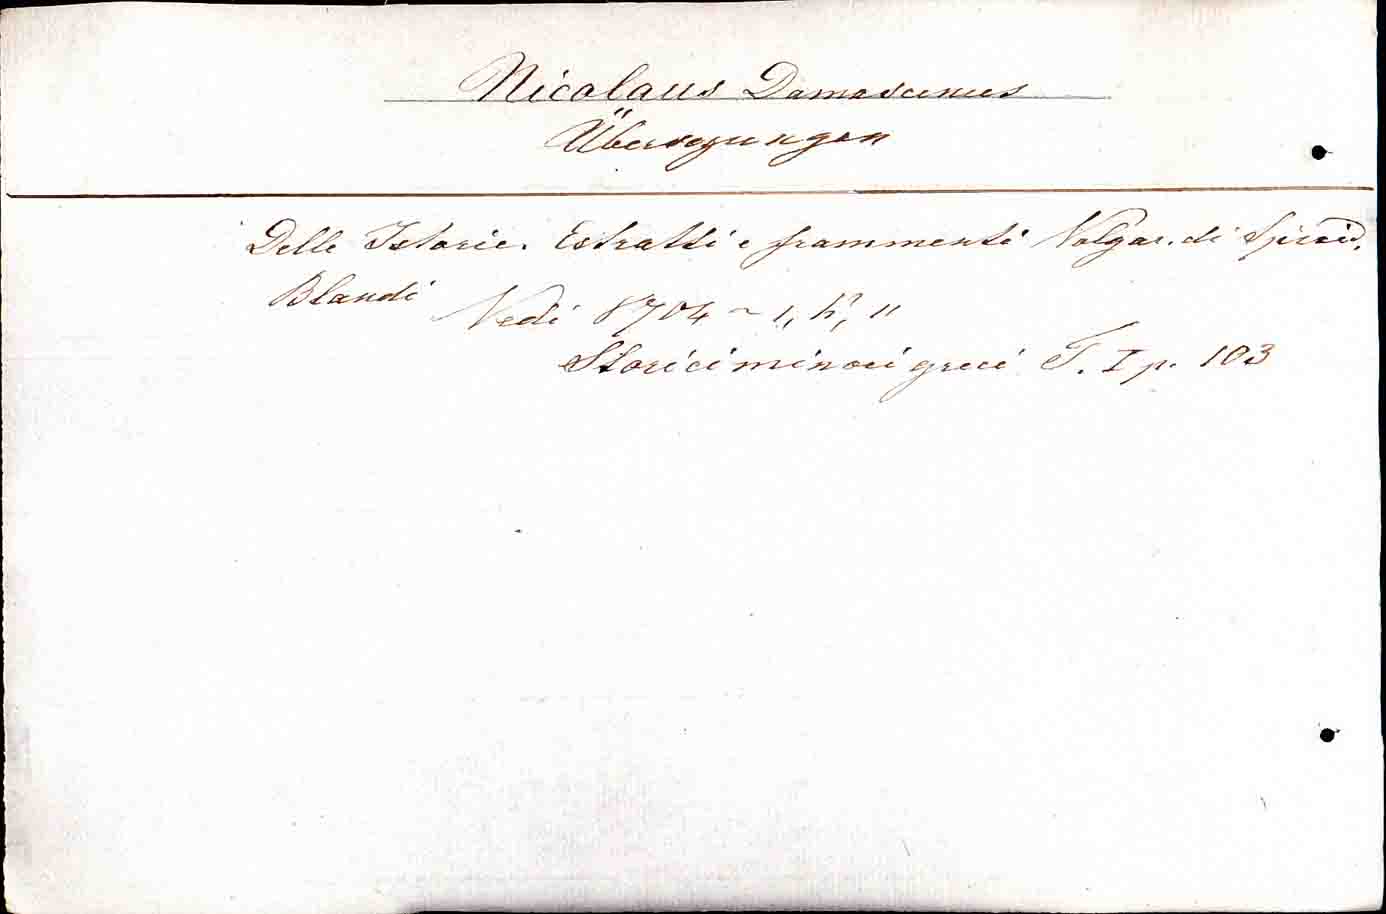 Nicolaus Damascenus
Übersetzungen
Delle Istorie. Estratti e frammenti Volgar. di Spirid.
Blandi
Vedi 8704 ~ 1, h, 11
Storici minori greci T. I p. 103